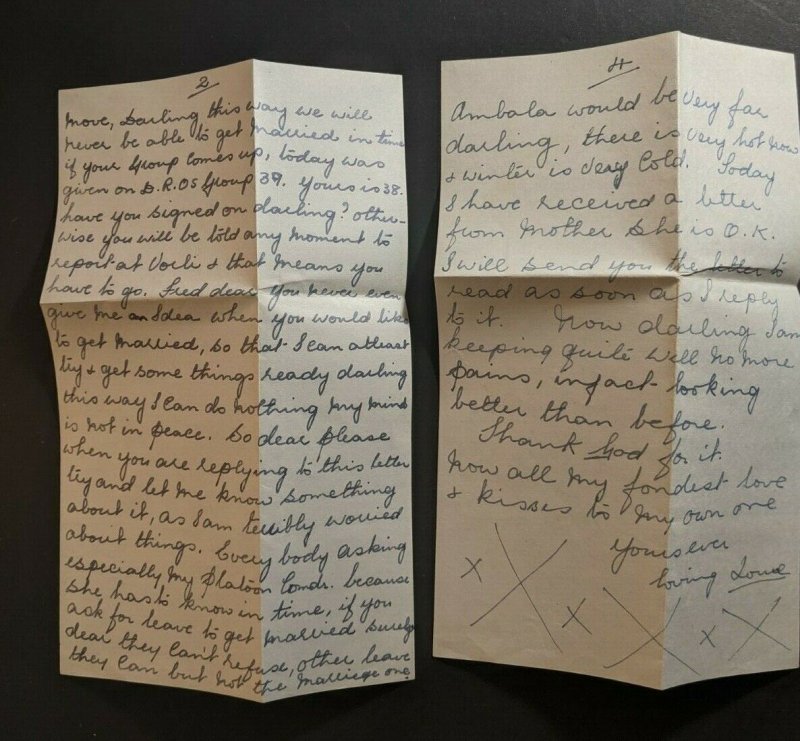 2
Move, Darling this way we will
never be able to get Married in time
if your Group comes up, today was
given on D.R.Os Group 39. Yours is 38.
have you signed on darling? other-
wise you will be told any Moment to
report at Vorli & that Means you
have to go. Fred dear you never even
give Me an Idea when you would like
to get Married, so that I can atleast
try & get some things ready darling
this way I can do nothing My Mind
is not in peace. So dear please
when you are replying to this letter
try and let Me know something
about it, as I am terribly worried
about things. Every body asking
especially My Platoon Comdr. because
she has to know in time, if you
ask for leave to get Married surely
dear they can't refuse, other leave
they can but not the Marriage one.
4
Ambala would be very far
darling, there is very hot now
& winter is very Cold. Today
I have received a letter
from Mother she is O.K.
I will send you the letter to
read as soon as I reply
to it. Now darling I am
keeping quite well no more
pains, infact looking
better than before.
Thank God for it.
Now all My fondest love
& kisses to My own one
Yours ever
loving
X X X X X X